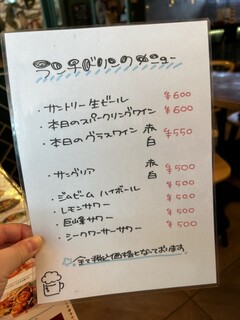 ランチドリンクメニュー
・サントリー 生ビール ¥600
・本日のスパークリングワイン ¥600
・本日のグラスワイン 赤 ¥550
白
・サングリア 赤
白 ¥500
・ジムビーム ハイボール ¥500
・レモンサワー ¥500
・巨峰サワー ¥500
・シークワーサーサワー ¥500
全て税込価格となっております